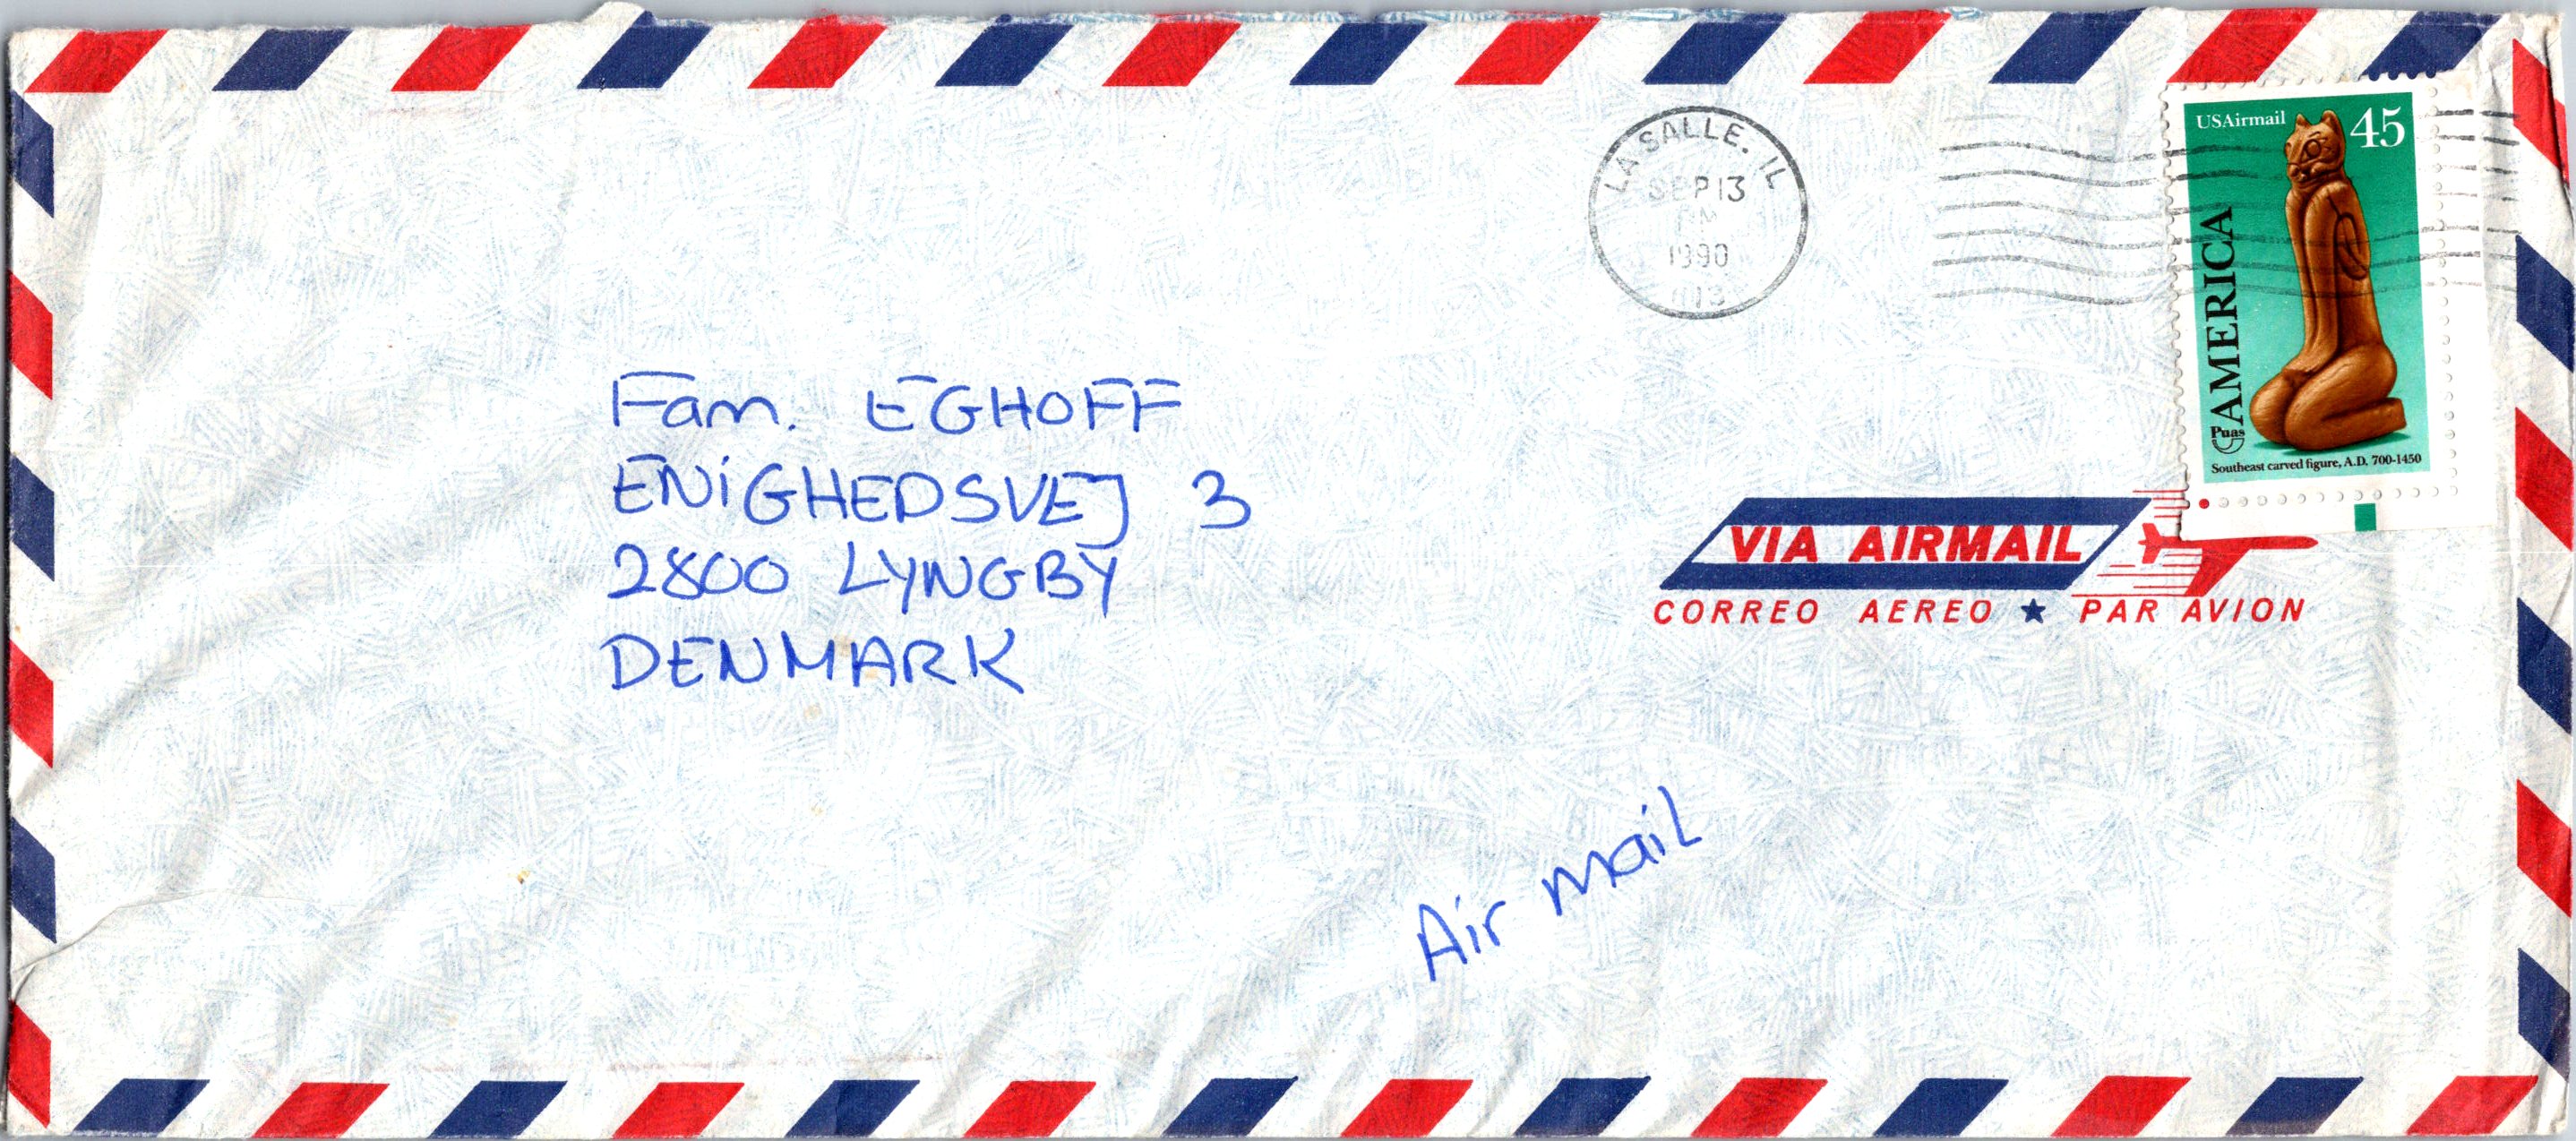 LA SALLE. IL
SEP 13
PM
1990
USAirmail 45
AMERICA
Puas
Southeast carved figure, A.D. 700-1450
Fam. EGHOFF
ENIGHEDSVEJ 3
2800 LYNGBY
DENMARK
VIA AIRMAIL
CORREO AEREO ★ PAR AVION
Air mail